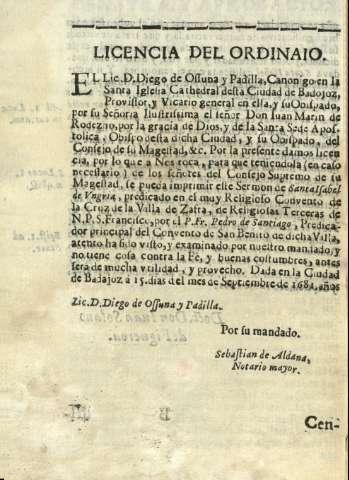 LICENCIA DEL ORDINAIO.
EL Lic. D. Diego de Ossuna y Padilla, Canonigo en la
Santa Iglesia Cathedral desta Ciudad de Badajoz,
Provisor, y Vicario general en ella, y su Obispado,
por su Señoria Ilustrissima el señor Don Iuan Marin de
Rodezno, por la gracia de Dios, y de la Santa Sede Apos-
tolica, Obispo desta dicha Ciudad, y su Obispado, del
Consejo de su Magestad, &c. Por la presente damos licen
cia, por lo que a Nos toca, para que teniendola (en caso
necessario) de los señores del Consejo Supremo de su
Magestad, se pueda imprimir este Sermon de Santa Isabel
de Vngria, predicado en el muy Religioso Convento de
la Cruz de la Villa de Zafra, de Religiosas Terceras de
N.P.S. Francisco, por el P. Fr. Pedro de Santiago, Predica-
dor principal del Convento de San Benito de dicha Villa,
atento ha sido visto, y examinado por nuestro mandado, y
no tiene cosa contra la Fè, y buenas costumbres, antes
serà de mucha vtilidad, y provecho. Dada en la Ciudad
de Badajoz à 15. dias del mes de Septiembre de 1681. años
Lic. D. Diego de Ossuna y Padilla.
Por su mandado.
Sebastian de Aldana,
Notario mayor.
Cen-